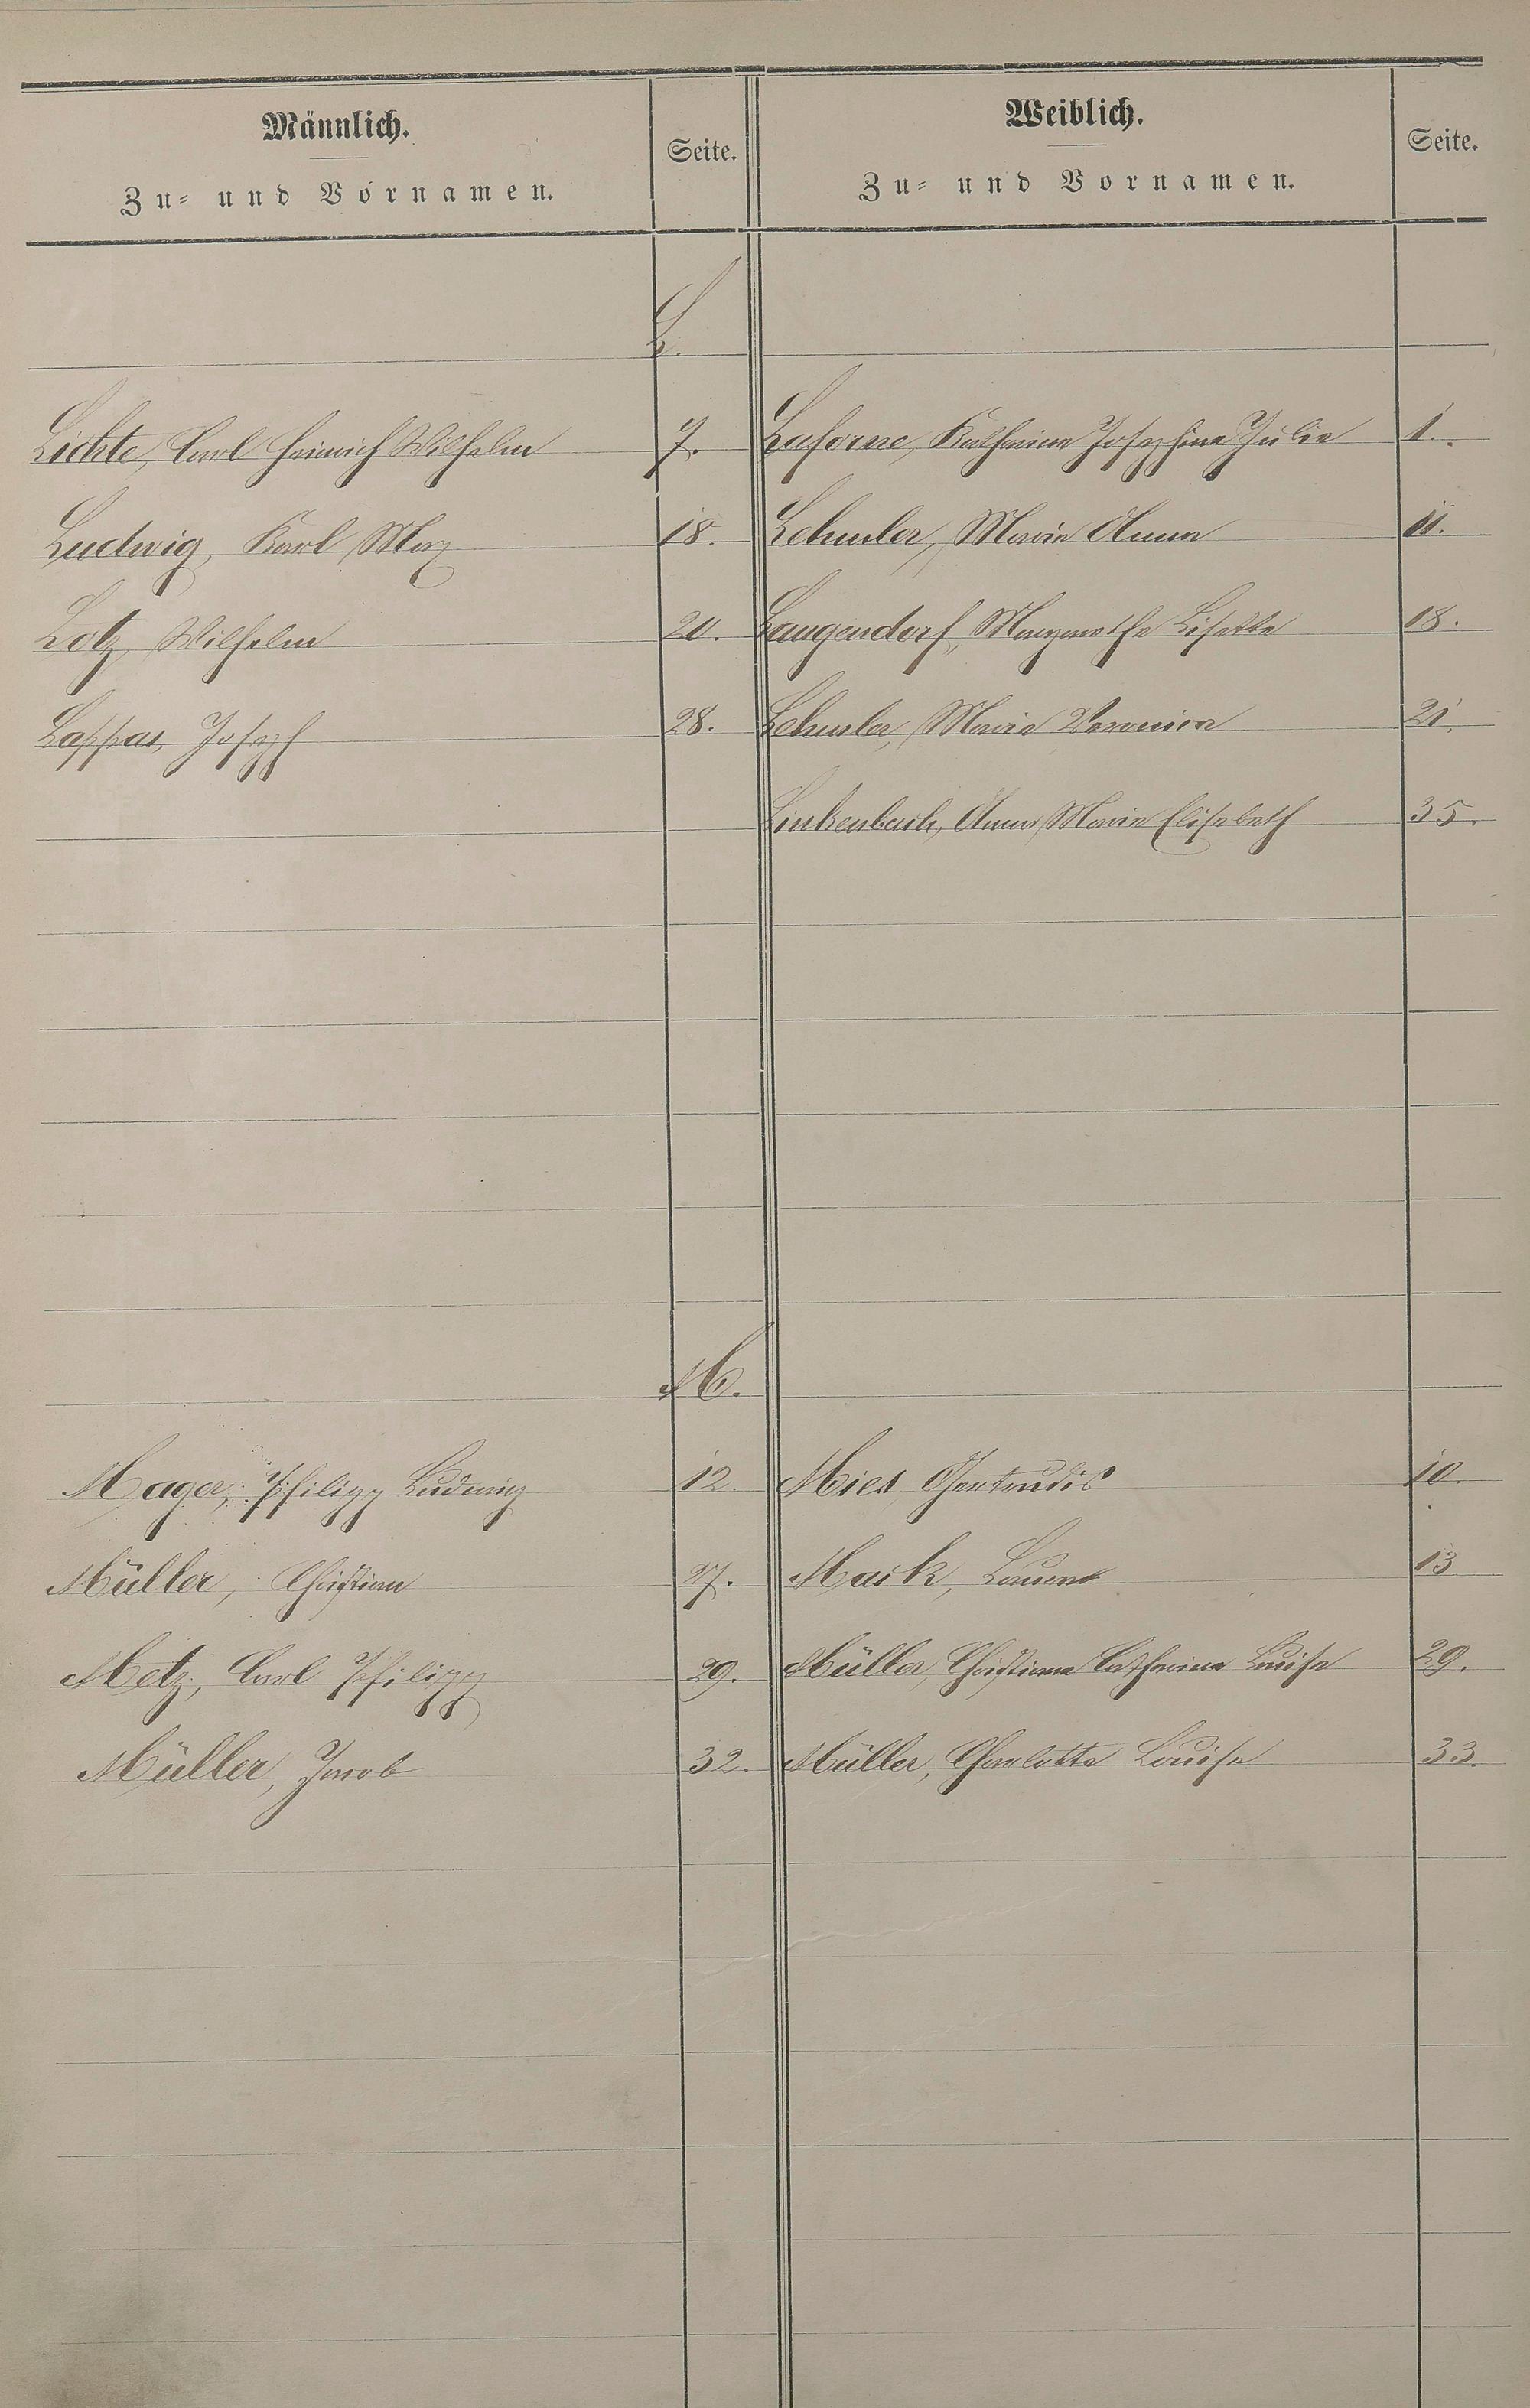 Männlich.
Zu- und Vornamen.
Seite.
Weiblich.
Zu- und Vornamen.
Seite.
L.
Lichte, Carl Heinrich Wilhelm 7. Laforne, Katharina Josephine Julie 1.
Ludwig, Karl Max 18. Lehmler, Maria Anna 11.
Lotz, Wilhelm 20. Langendorf, Margarethe Lisette 18.
Lappas, Joseph 28. Lehmler, Maria Veronica 21.
Linkenbach, Anna Maria Elisabeth 35.
M.
Mager, Philipp Ludwig 12. Mies, Gertrudis 10.
Müller, Christian 27. Mack, 13
Metz, Carl Philipp 29. Müller, Christiane Catharina Luise 29.
Müller, Jacob 32. Müller, Charlotte Louise 33.